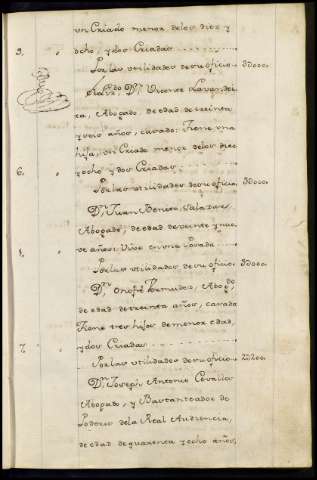 un Criado menor de los diez y
9, ocho, y dos Criadas
Por las utilidades de su oficio. 30000.
Dn. Vicente
Abogado, de edad de treinta
y seis años, casado: Tiene una
hija, un Criado menor de los diez
6, y ocho y dos Criadas
Por las utilidades de su oficio.
Dn. Juan Benito Salazar
Abogado, de edad de veinte y nue
ve años: Vive en una Posada
1, Por las utilidades de su oficio.
Dn. Onofre Abogdo.
de edad de treinta años, casada
Tiene tres hijos de menor edad,
7, y dos Criadas
Por las utilidades de su oficio.
Dn. Joseph Antonio
Abogado, y Bastanteador de
Poderes de la Real Audiencia,
de edad de quarenta y ocho años,